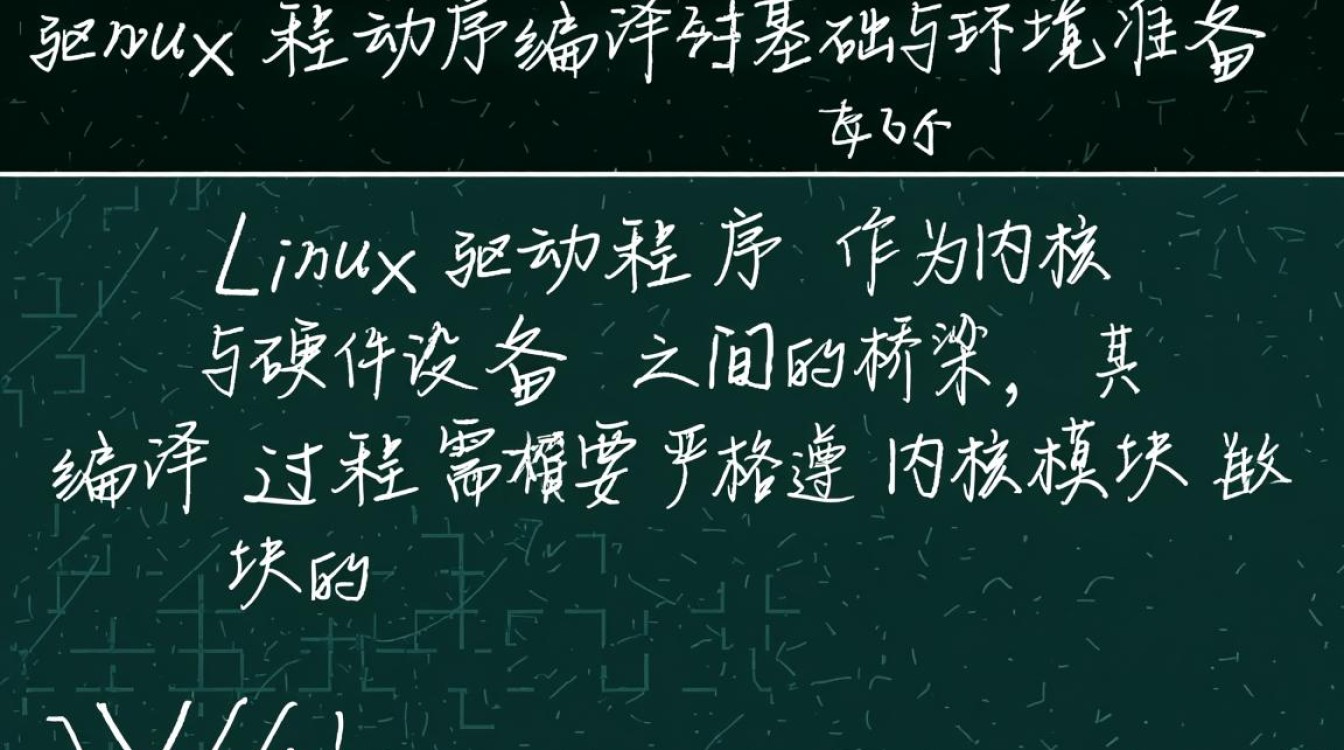 驱nux 程动序编泽对基础与环境准备
Linux 驱动程序 作为内核
与硬件设备 之间的桥梁, 其
编泽 过程需要严格遵 内核模块
块的